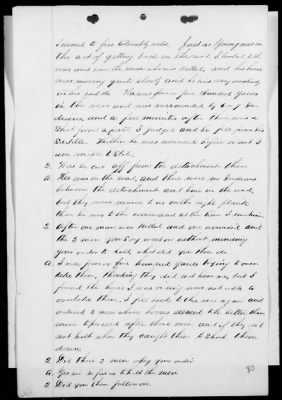 seemed to fire tolerably well. Just as Young was in
the act of getting back in the road I looked to the
rear and saw the man who was killed, and his horse
was moving quite slowly and he was very unsteady
in his saddle. He was from four hundred yards
in the rear and was surrounded by 6 or 7 In-
dians, and a few minutes after there was a
shot from a pistol I judged and he fell from his
saddle. Whether he was wounded before or not I
am unable to state.
2. Was he cut off from the detachment then
A. He was in the road, and there were no Indians
between the detachment and him in the road,
but they were nearer to us on the right flank
than he was to the command at the time I
2. After one man was killed and one wounded and
the 2 men you say ran on without minding
your orders to halt, what did you then do
A. I ran four or five hundred yards trying to over
take them, thinking they did not hear me, but I
found the horse I was riding was not able to
overtake them, I fell back to the rear again and
ordered 2 men whose horses seemed the better than
mine to proceed after those men and if they did
not halt when they caught them to shoot them
down
2. Did those 2 men obey your order
A. Yes sir so far as to halt the men
2. Did you then follow on.
80